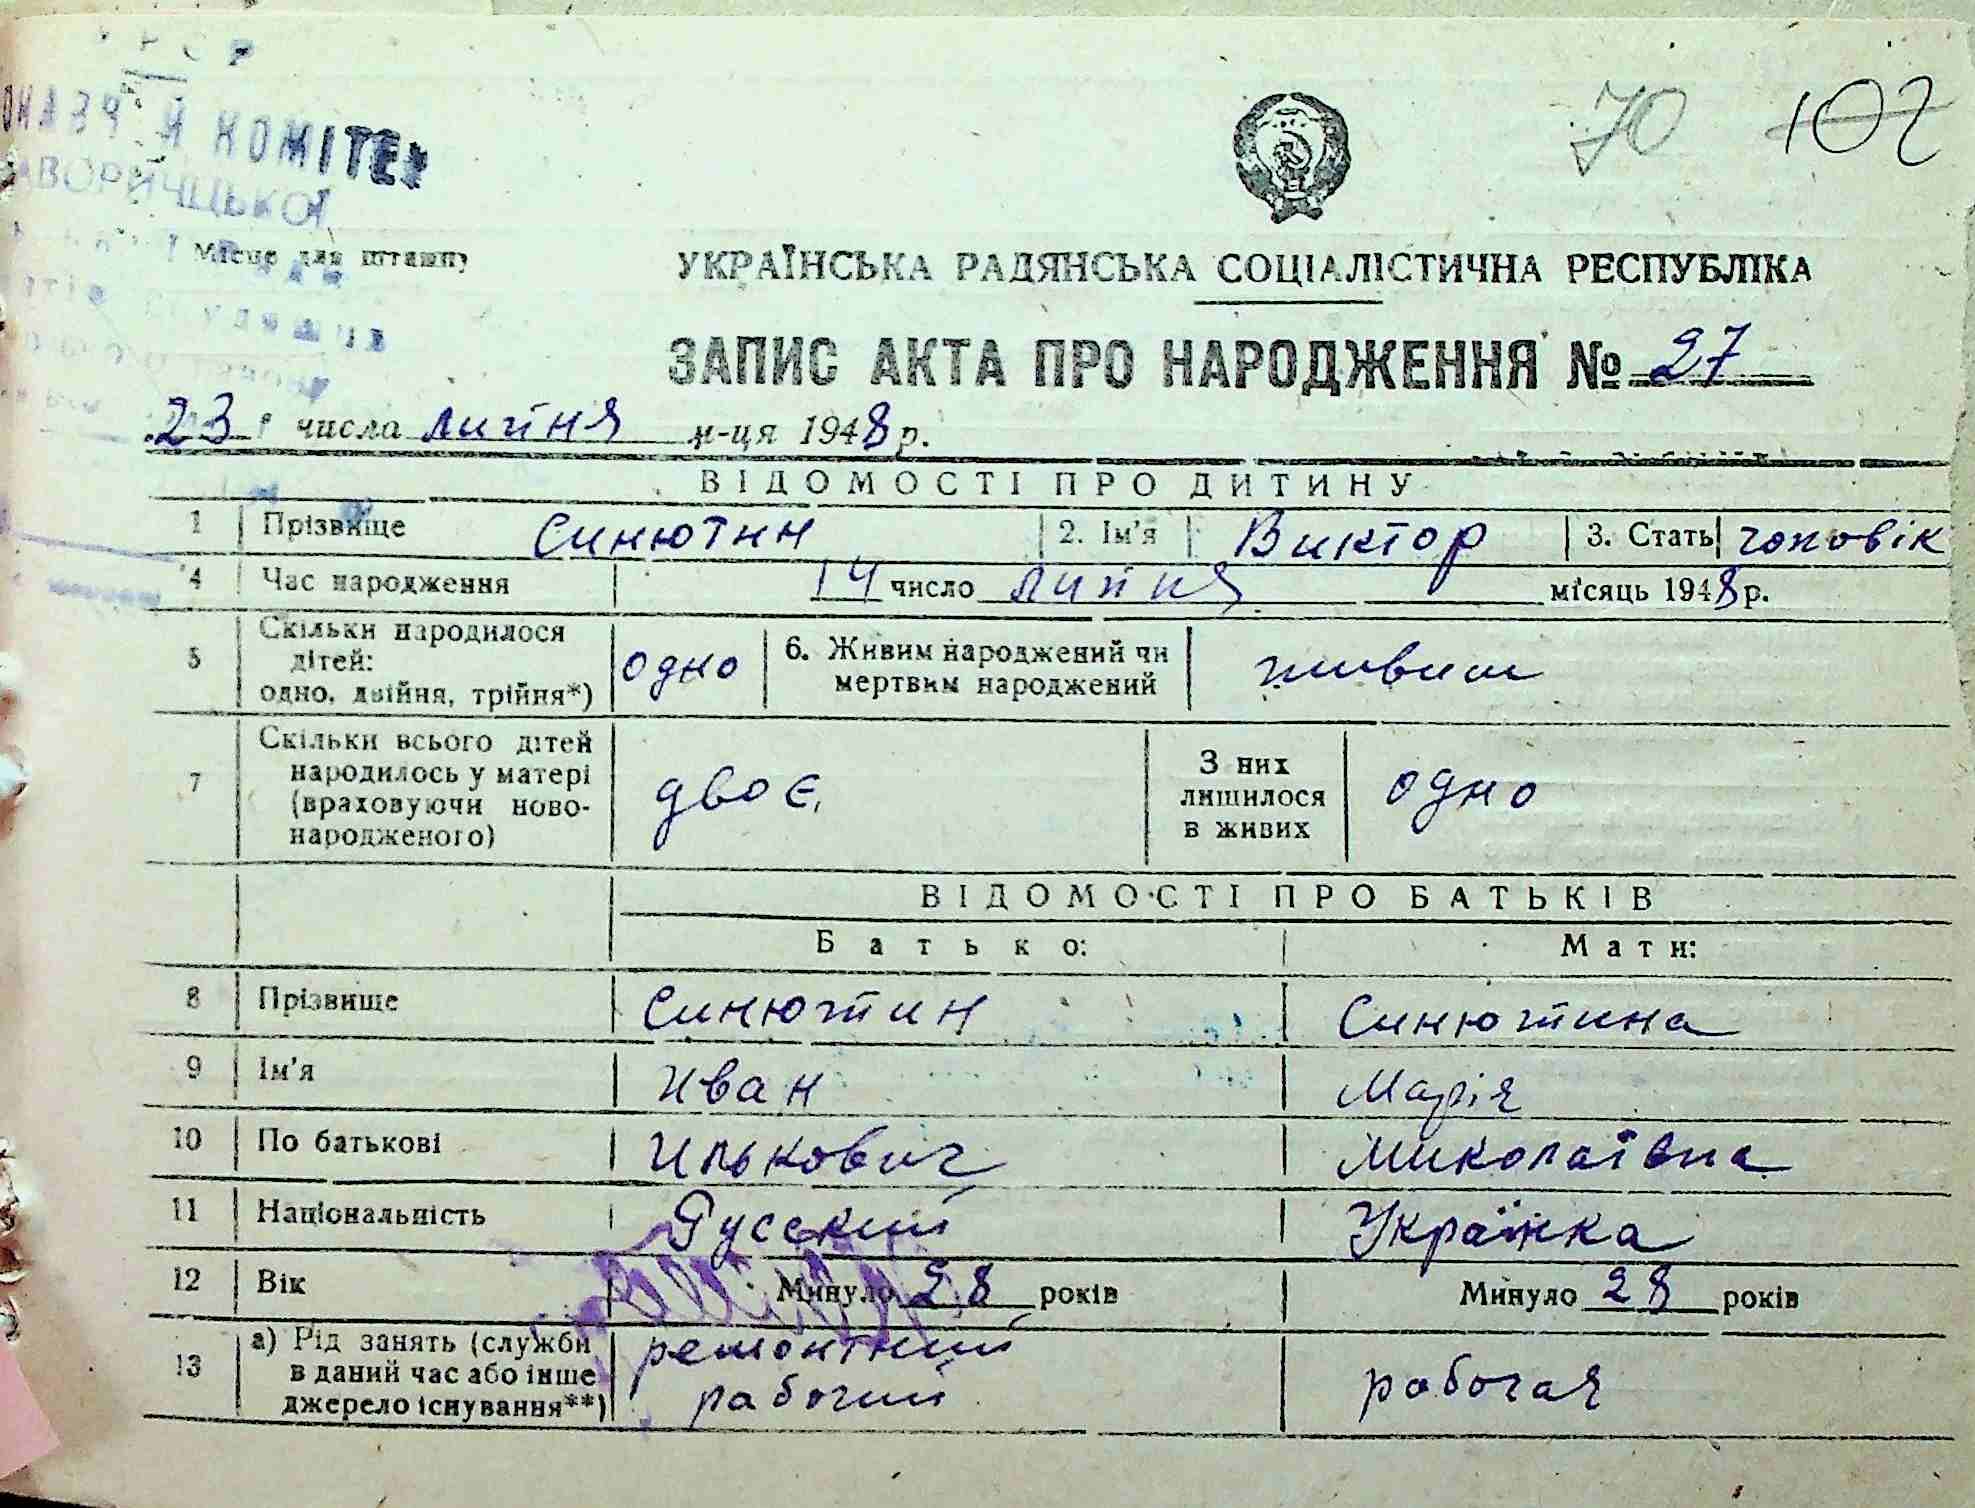 КОМІТЕ
70 102
Місце для штампу
УКРАЇНСЬКА РАДЯНСЬКА СОЦІАЛІСТИЧНА РЕСПУБЛІКА
ЗАПИС АКТА ПРО НАРОДЖЕННЯ № 27
23 числа липня м-ця 1948 р.
ВІДОМОСТІ ПРО ДИТИНУ
1 Прізвище Синютин 2. Ім'я Виктор 3. Стать чоловік
4 Час народження 14 число липня місяць 1948 р.
Скільки народилося
5 дітей: одно 6. Живим народжений чи живим
одно, двійня, трійня*) мертвим народжений
Скільки всього дітей
народилось у матері З них
7 (враховуючи ново- двоє, лишилося одно
народженого) в живих
ВІДОМОСТІ ПРО БАТЬКІВ
Батько: Мати:
8 Прізвище Синютин Синютина
9 Ім'я Иван Марія
10 По батькові Илькович Миколаївна
11 Національність Русский Українка
12 Вік Минуло 28 років Минуло 28 років
а) Рід занять (служби ремонтний
13 в даний час або інше рабочий рабочая
джерело існування**)